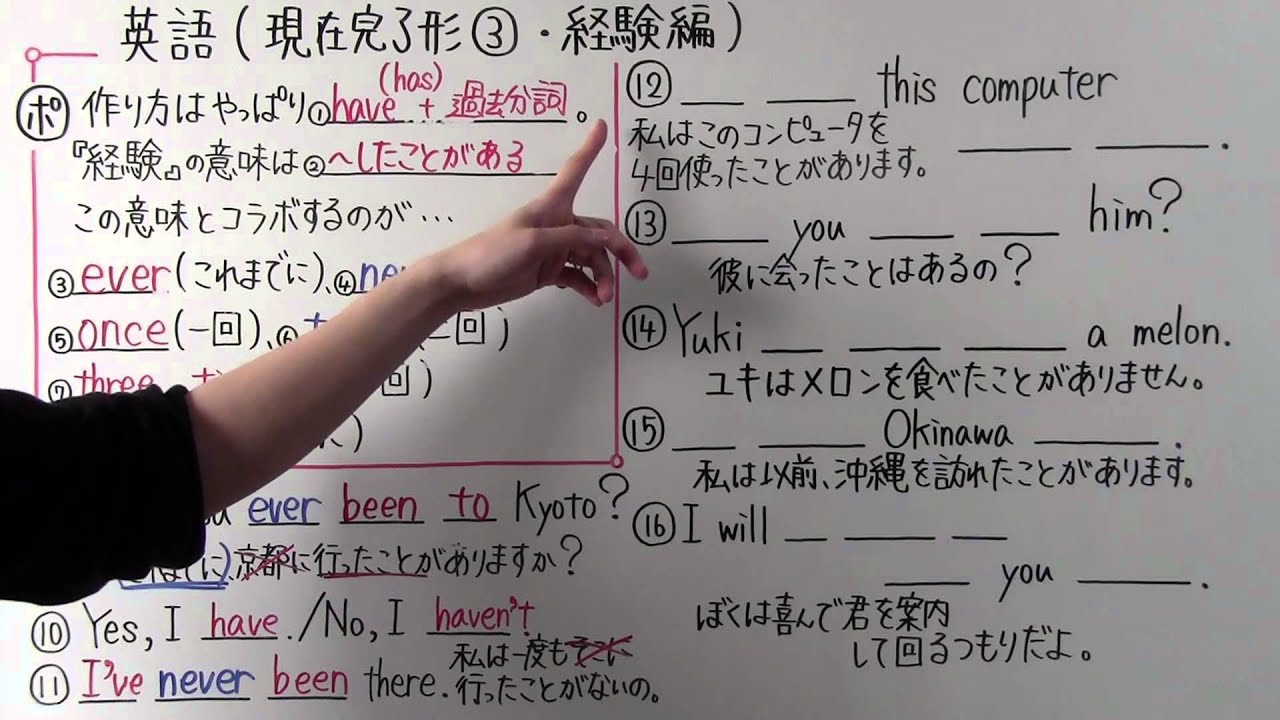 英語(現在完了形③・経験編)
(has)
ポ 作り方はやっぱり①have + 過去分詞。
『経験』の意味は②〜したことがある
この意味とコラボするのが…
③ever(これまでに)、④
⑤once(一回)、⑥ 回)
⑦three 回)
に)
ever been to Kyoto?
に、京都に行ったことがありますか?
⑩Yes, I have./No, I haven't
私は一度もそこに
⑪I've never been there. 行ったことがないの。
⑫ __ __ this computer
私はこのコンピュータを __ __.
4回使ったことがあります。
⑬ __ you __ __ him?
彼に会ったことはあるの?
⑭Yuki __ __ __ a melon.
ユキはメロンを食べたことがありません。
⑮ __ __ Okinawa __.
私は以前、沖縄を訪れたことがあります。
⑯I will __ __ __
__ you __.
ぼくは喜んで君を案内
して回るつもりだよ。